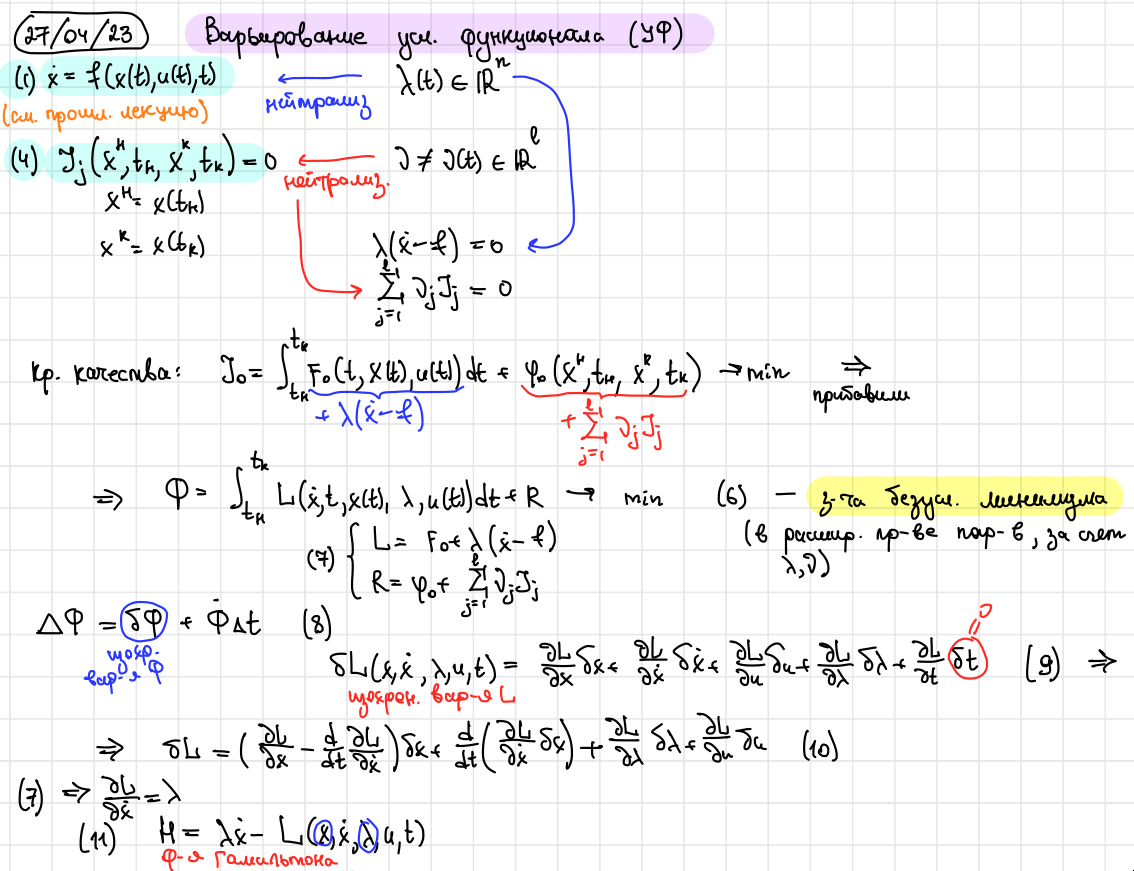 27/04/23 Варьирование усл. функционала (УФ)
(1) ẋ = f(x(t),u(t),t) нейтрализ λ(t) ∈ ℝⁿ
(см. прошл. лекцию)
(4) J_j(x^н, t_н, x^к, t_к) = 0 нейтрализ. ν ≠ ν(t) ∈ ℝ^l
x^н = x(t_н)
x^к = x(t_к) λ(ẋ-f) = 0
∑_{j=1}^{l} ν_j J_j = 0
кр. качества: J₀ = ∫_{t_н}^{t_к} F₀(t, x(t), u(t)) dt + φ₀(x^н, t_н, x^к, t_к) → min ⇒
+ λ(ẋ-f) + ∑_{j=1}^{l} ν_j J_j прибавили
⇒ Φ = ∫_{t_н}^{t_к} L(ẋ, t, x(t), λ, u(t)) dt + R → min (6) — з-ча безусл. минимума
(в расшир. пр-ве пар-в, за счет λ, ν)
(7) { L = F₀ + λ(ẋ-f)
R = φ₀ + ∑_{j=1}^{l} ν_j J_j
ΔΦ = δΦ + Φ̇Δt (8)
изохр. вар-я Φ
δL(x, ẋ, λ, u, t) = ∂L/∂x δx + ∂L/∂ẋ δẋ + ∂L/∂u δu + ∂L/∂λ δλ + ∂L/∂t δt = 0 (9) ⇒
изохрон. вар-я L
⇒ δL = (∂L/∂x - d/dt ∂L/∂ẋ) δx + d/dt (∂L/∂ẋ δx) + ∂L/∂λ δλ + ∂L/∂u δu (10)
(7) ⇒ ∂L/∂ẋ = λ
(11) H = λẋ - L(x, ẋ, λ, u, t)
ф-я Гамильтона